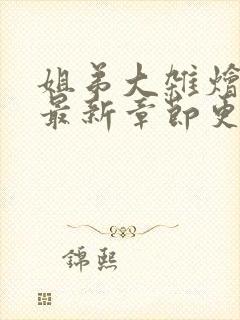 姐弟大雑燴
最新章節更
錦熙